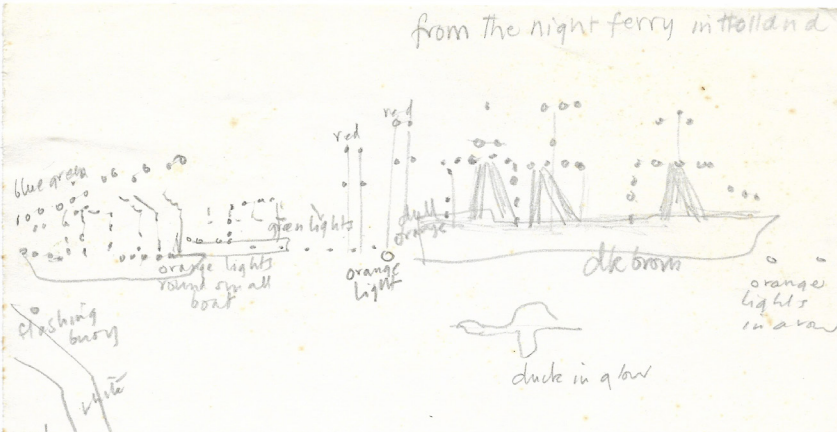 from the night ferry in Holland
red
red
blue green
green lights
dull
orange
orange lights
round small
boat
orange
light
dk brown
orange
lights
in a row
flashing
buoy
duck in a
white